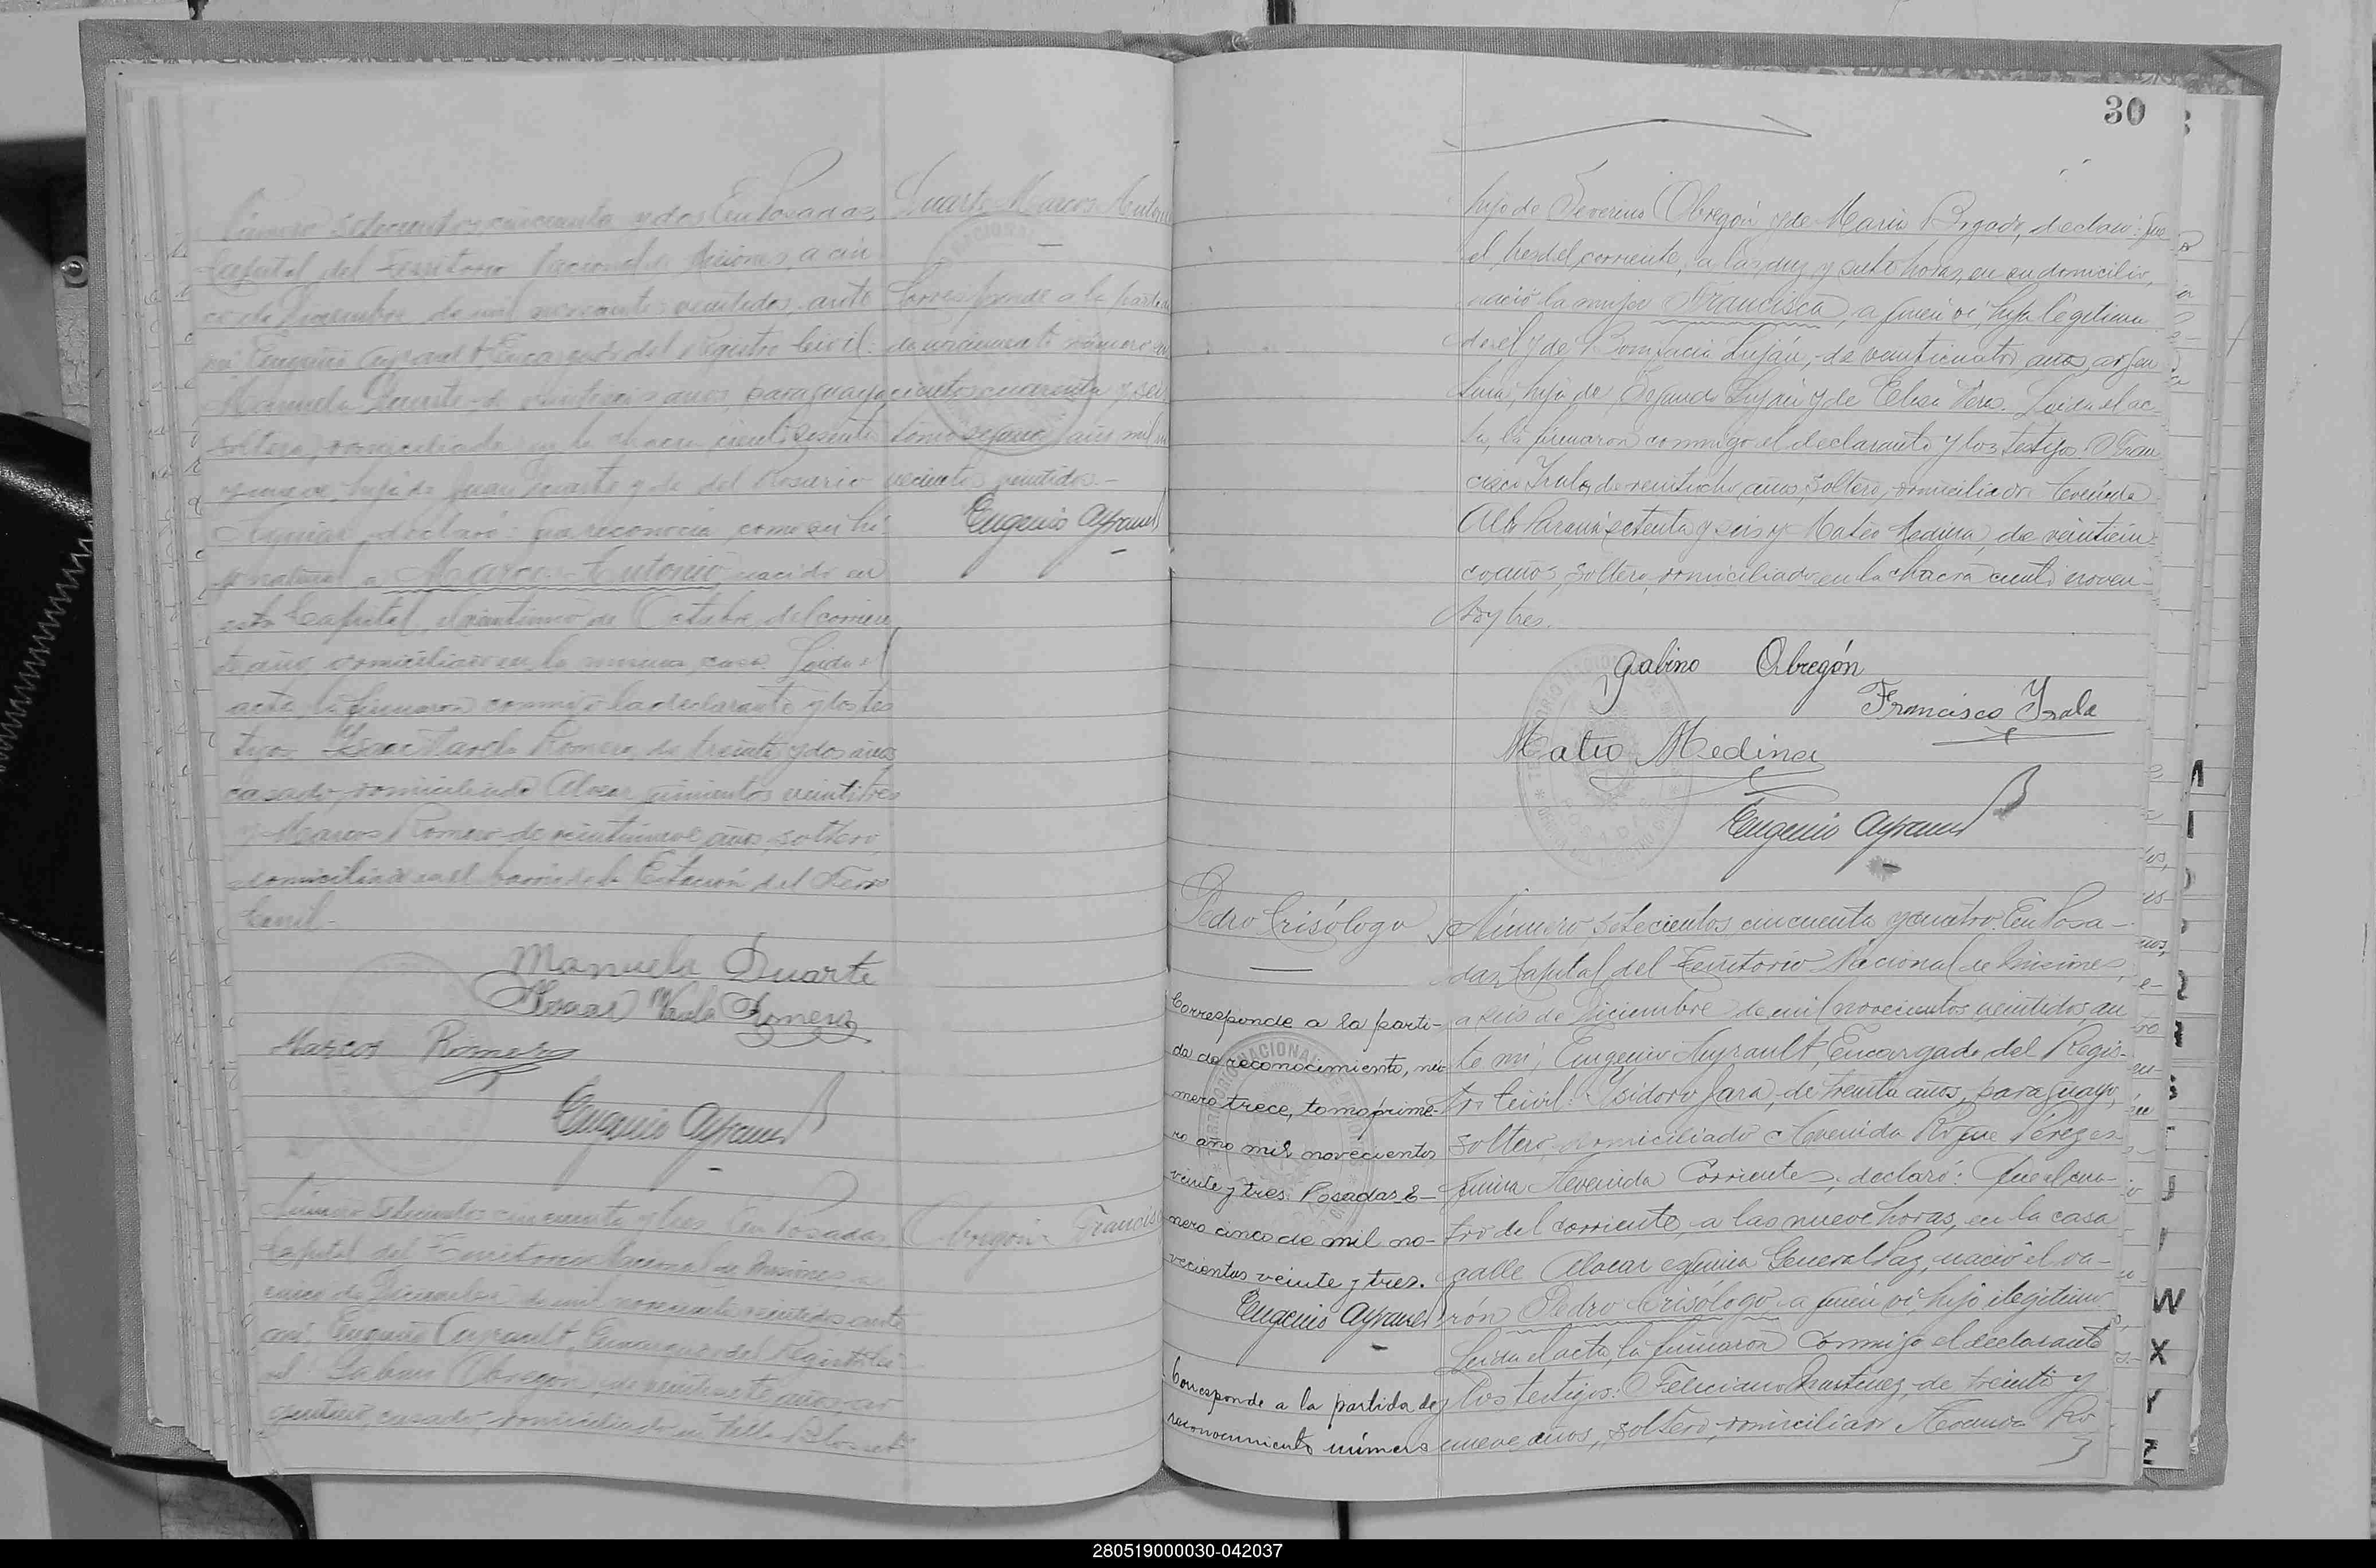 Número setecientos cincuenta y dos. En Posadas,
Capital del Territorio Nacional de Misiones, a cin
co de Diciembre de mil novecientos veintidos, ante
mi, Eugenio Ayrault, Encargado del Registro Civil:
Manuela Duarte de veintiseis años, paraguaya
soltera, domiciliada en la chacra ciento sesenta
y nueve, hija de Juan Duarte y de del Rosario
Aguiar, declaró: que reconocía como su hi-
jo natural a Marcos Antonio, nacido en
esta Capital, el veintiuno de Octubre del corrien
te año, domiciliado en la misma casa. Leida el
acta, la firmaron conmigo la declarante y los tes
tigos Isaac Varela Romero, de treinta y dos años,
casado, domiciliado Alvear quinientos veintitres
y Marcos Romero de veintinueve años, soltero,
domiciliado en el barrio de la Estación del Ferro
Carril.-
Manuela Duarte
Isaac Varela Romero
Marcos Romero
Eugenio Ayrault
Duarte Marcos Antoni
Corresponde a la partida
de nacimiento número
cientos cuarenta y seis
tomo segundo año mil no
vecientos veintidos.-
Eugenio Ayrault
Número setecientos cincuenta y tres. En Posadas
Capital del Territorio Nacional de Misiones, a
cinco de Diciembre de mil novecientos veintidos, ante
mi, Eugenio Ayrault, Encargado del Registro Ci-
vil: Gabino Obregón, de veintisiete años, ar
gentino, casado, domiciliado en Villa Blosset
Obregón Francis
30
hijo de Severino Obregón y de María Bogado, declaró: que
el tres del corriente, a las diez y siete horas, en su domicilio,
nació la mujer Francisca, a quien vi, hija legítima
de el y de Bonifacia Luján, de veinticuatro años, argen
tina, hija de Segundo Luján y de Elisa Vera. Leida el ac-
ta, la firmaron conmigo el declarante y los testigos: Fran
cisco Irala, de veintiocho años, soltero, domiciliado Avenida
Alto Paraná setenta y seis y Mateo Medina, de veinticin-
co años, soltero, domiciliado en la chacra ciento noven-
ta y tres.
Gabino Obregón
Francisco Irala
Mateo Medina
Eugenio Ayrault
Pedro Crisólogo
Corresponde a la parti-
da de reconocimiento, nú-
mero trece, tomo prime-
ro año mil novecientos
veinte y tres. Posadas E-
nero cinco de mil no-
vecientos veinte y tres.
Eugenio Ayrault
Corresponde a la partida de
reconocimiento número
Número setecientos cincuenta y cuatro. En Posa-
das, Capital del Territorio Nacional de Misiones,
a seis de Diciembre de mil novecientos veintidos, an
te mi, Eugenio Ayrault, Encargado del Regis-
tro Civil: Ysidoro Jara, de treinta años, paraguayo,
soltero, domiciliado Avenida Roque Pérez es-
quina Avenida Corrientes, declaró: Que el cua-
tro del corriente, a las nueve horas, en la casa
calle Alvear esquina General Paz, nació el va-
rón Pedro Crisólogo a quien vi hijo ilegitimo
Leida el acta, la firmaron conmigo el declarante
y los testigos: Feliciano Martinez, de treinta y
nueve años, soltero, domiciliado Avenida Ro
W
X
Y
Z
280519000030-042037